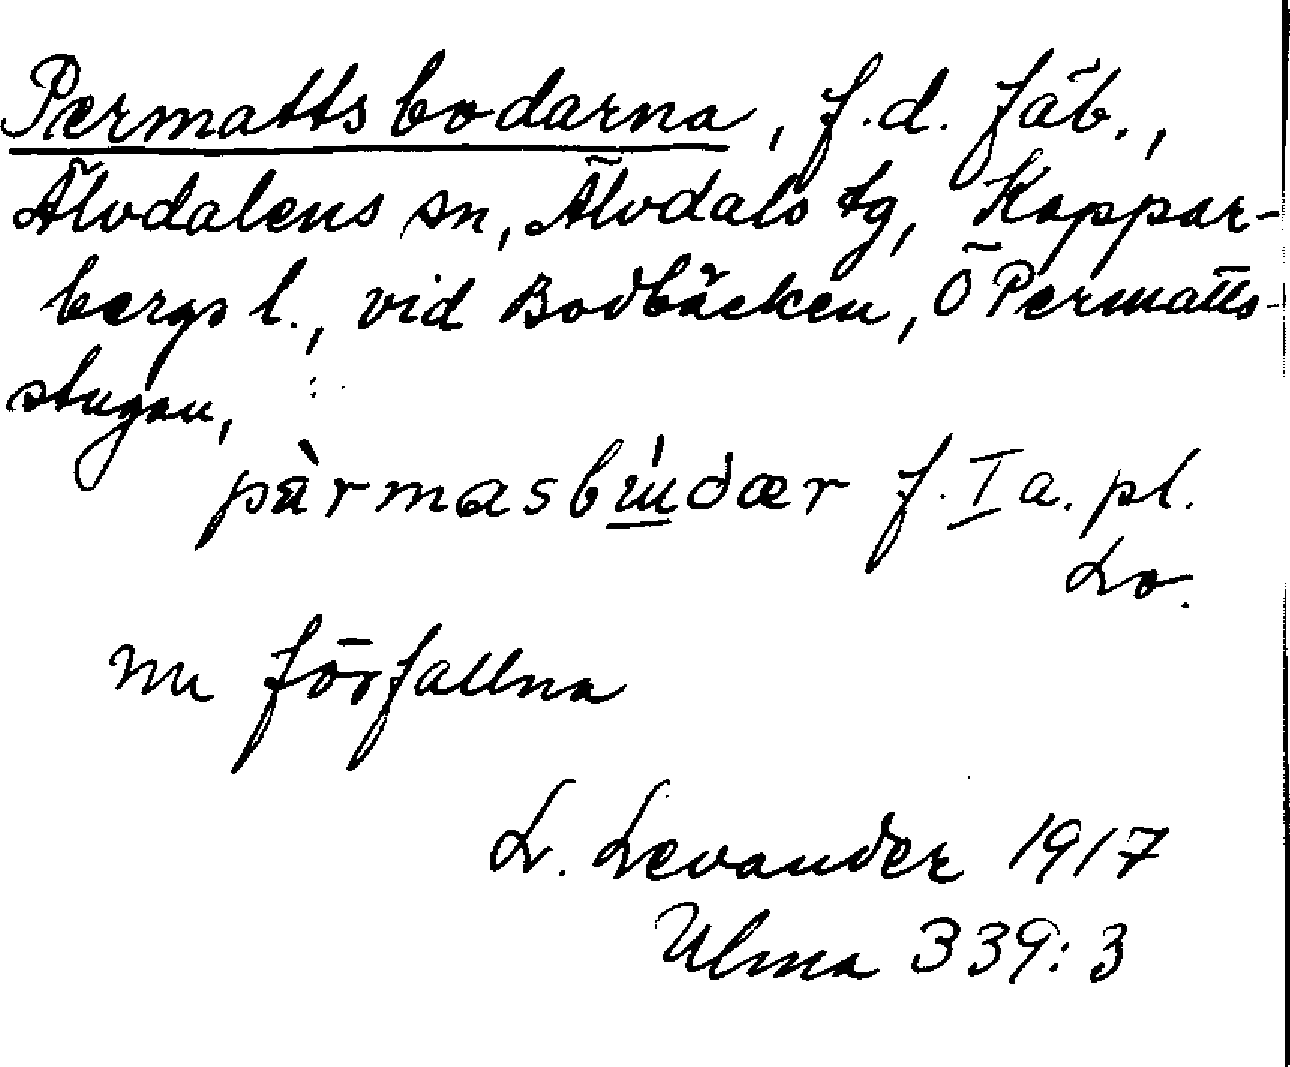 Permattsbodarna, f.d. fäb.,
Älvdalens sn, Älvdals tg, Koppar-
bergs l., vid Bodbäcken, Ö Permatts-
stugan,
pàrmasbu̲̍dær f. I a. pl.
Lo.
nu förfallna
L. Levander 1917
Ulma 339:3